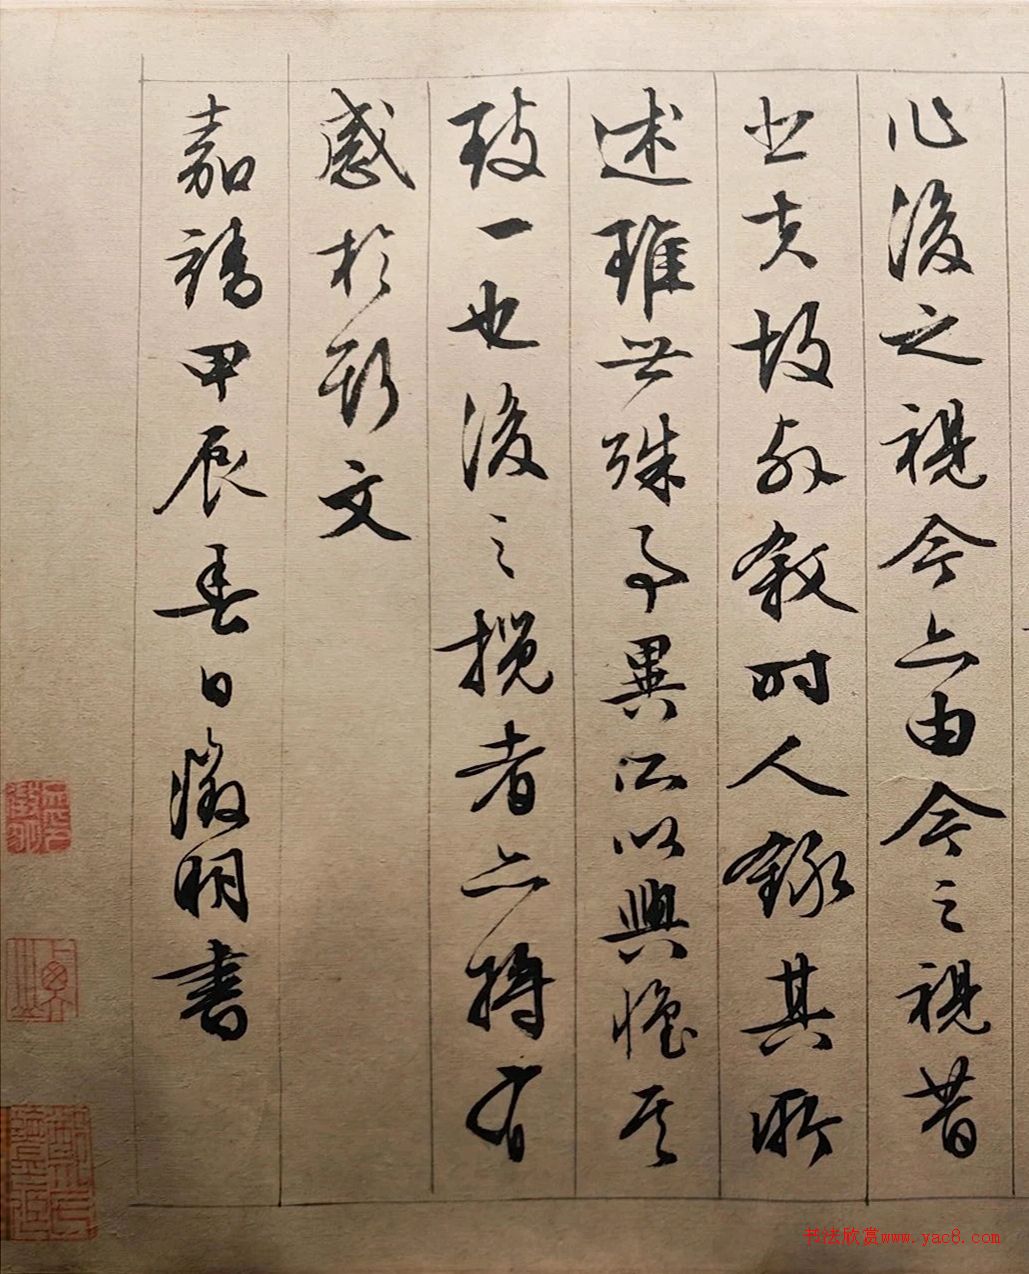 作後之視今亦由今之視昔
悲夫故列敘時人錄其所
述雖世殊事異所以興懷其
致一也後之攬者亦將有
感於斯文
嘉靖甲辰春日徵明書
书法欣赏www.yac8.com